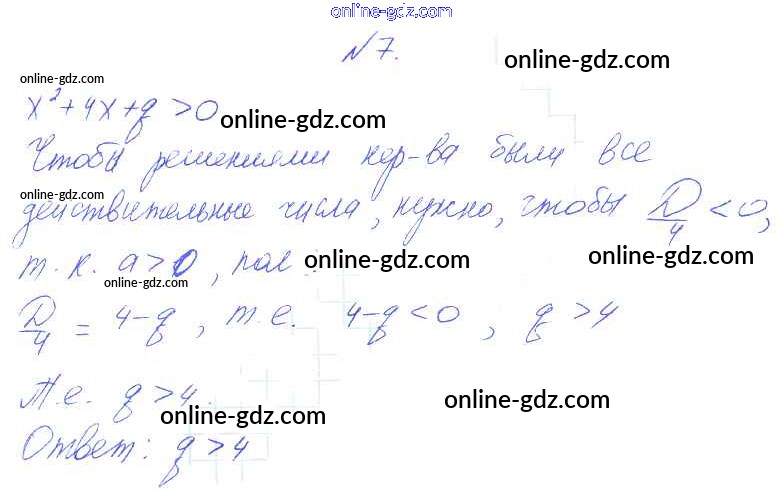 online-gdz.com
N 7.
online-gdz.com
online-gdz.com
x²+4x+q>0
online-gdz.com
Чтобы решениями нер-ва были все
online-gdz.com
действительные числа, нужно, чтобы D/4 <0,
т.к. a>0, пол
online-gdz.com
online-gdz.com
online-gdz.com
D/4 = 4-q, т.е. 4-q<0, q>4
Т.е. q>4.
online-gdz.com
online-gdz.com
Ответ: q>4